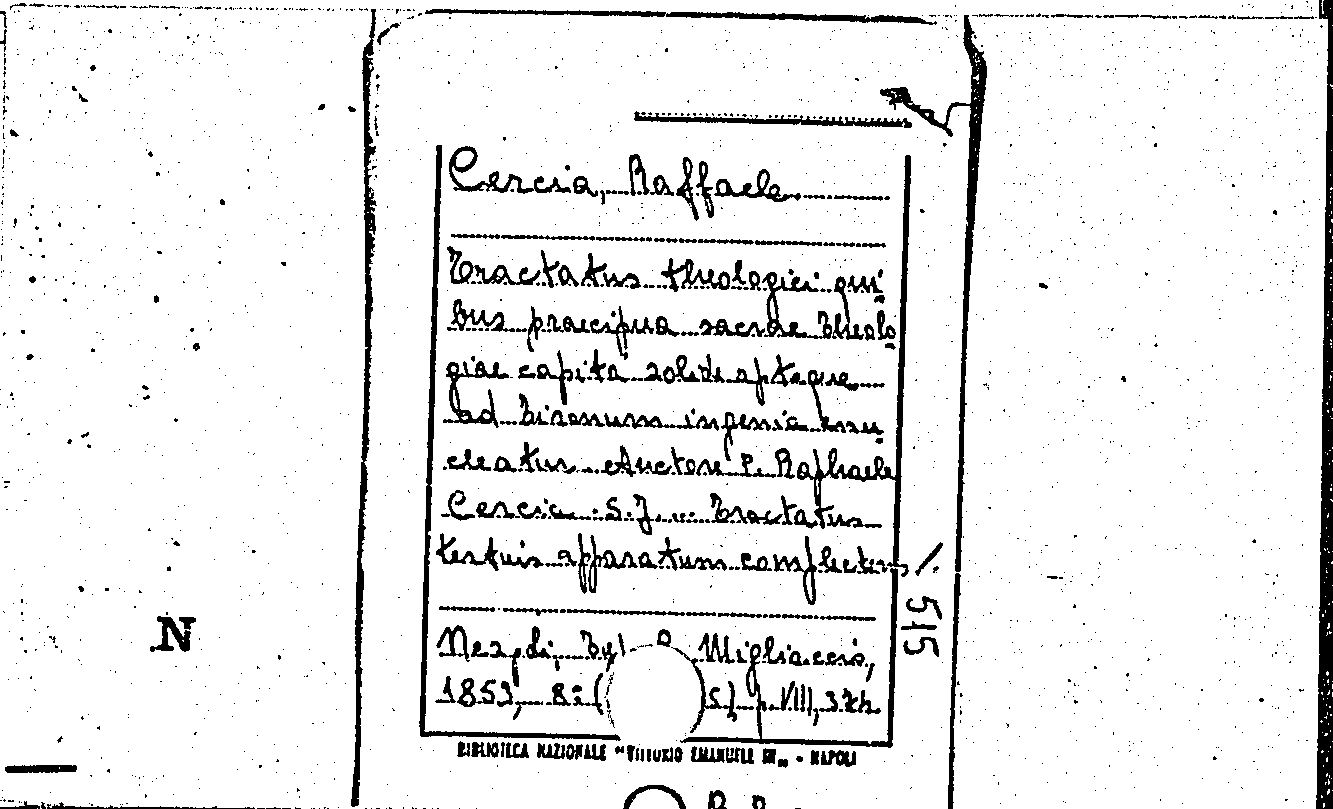 Cercia, Raffaele.
Tractatus theologici qui
bus praecipua sacrae theolo
giae capita solide apteque
ad tironum ingenia enu
cleatur Auctore P. Raphaele
Cercia S.J. ... Tractatus
tertuis apparatum complectens /.
515
Napoli, Migliaccio,
1853, 8: ( s.) p. VIII,
N
BIBLIOTECA NAZIONALE "VITTORIO EMANUELE III" - NAPOLI